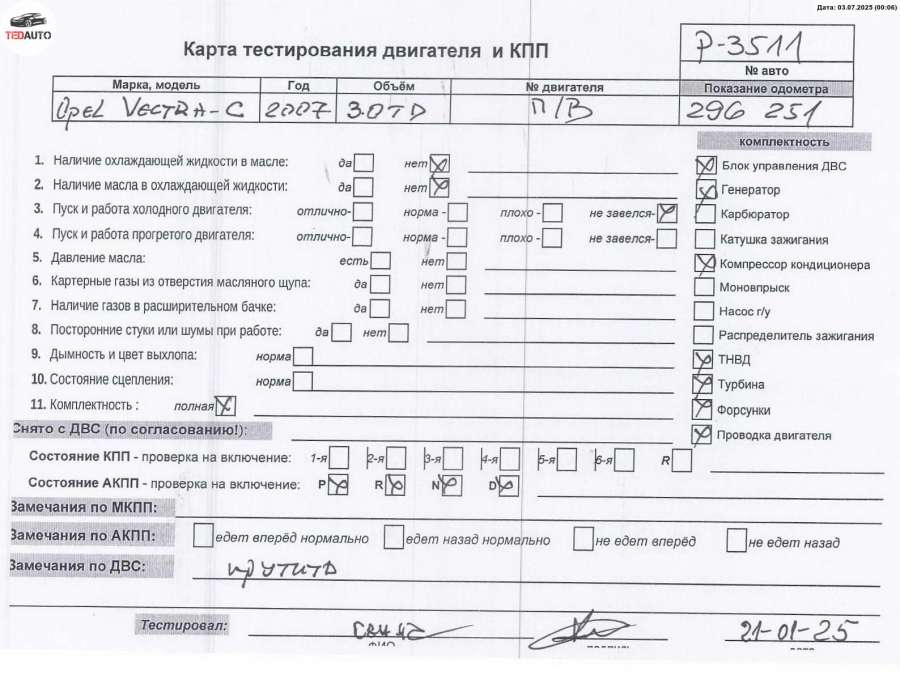 Дата: 03.07.2025 (00:06)
TEDAUTO
Карта тестирования двигателя и КПП
P-3511
№ авто
Марка, модель Год Объём № двигателя Показание одометра
Opel VECTRA-C 2007 3.0TD П/В 296 251
комплектность
1. Наличие охлаждающей жидкости в масле: да нет Блок управления ДВС
2. Наличие масла в охлаждающей жидкости: да нет Генератор
3. Пуск и работа холодного двигателя: отлично- норма - плохо - не завелся- Карбюратор
4. Пуск и работа прогретого двигателя: отлично- норма - плохо - не завелся- Катушка зажигания
5. Давление масла: есть нет Компрессор кондиционера
6. Картерные газы из отверстия масляного щупа: да нет Моновпрыск
7. Наличие газов в расширительном бачке: да нет Насос г/у
8. Посторонние стуки или шумы при работе: да нет Распределитель зажигания
9. Дымность и цвет выхлопа: норма ТНВД
10. Состояние сцепления: норма Турбина
11. Комплектность : полная Форсунки
Снято с ДВС (по согласованию!): Проводка двигателя
Состояние КПП - проверка на включение: 1-я 2-я 3-я 4-я 5-я 6-я R
Состояние АКПП - проверка на включение: P R N D
Замечания по МКПП:
Замечания по АКПП: едет вперёд нормально едет назад нормально не едет вперёд не едет назад
Замечания по ДВС: крутить
Тестировал: 21-01-25
ФИО подпись дата